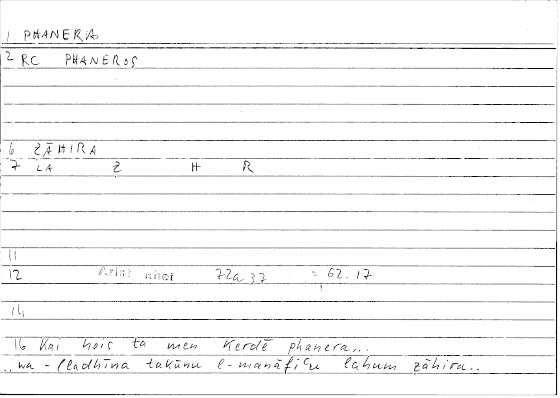 1 PHANERA
2 RC PHANEROS
6 ẒĀHIRA
7 LA Ẓ H R
11
12 Arist rhet 72a37 = 62.17
14
16 Kai hois ta men kerdē phanera...
..wa-lladhīna takūnu l-manāfiʿu lahum ẓāhira..